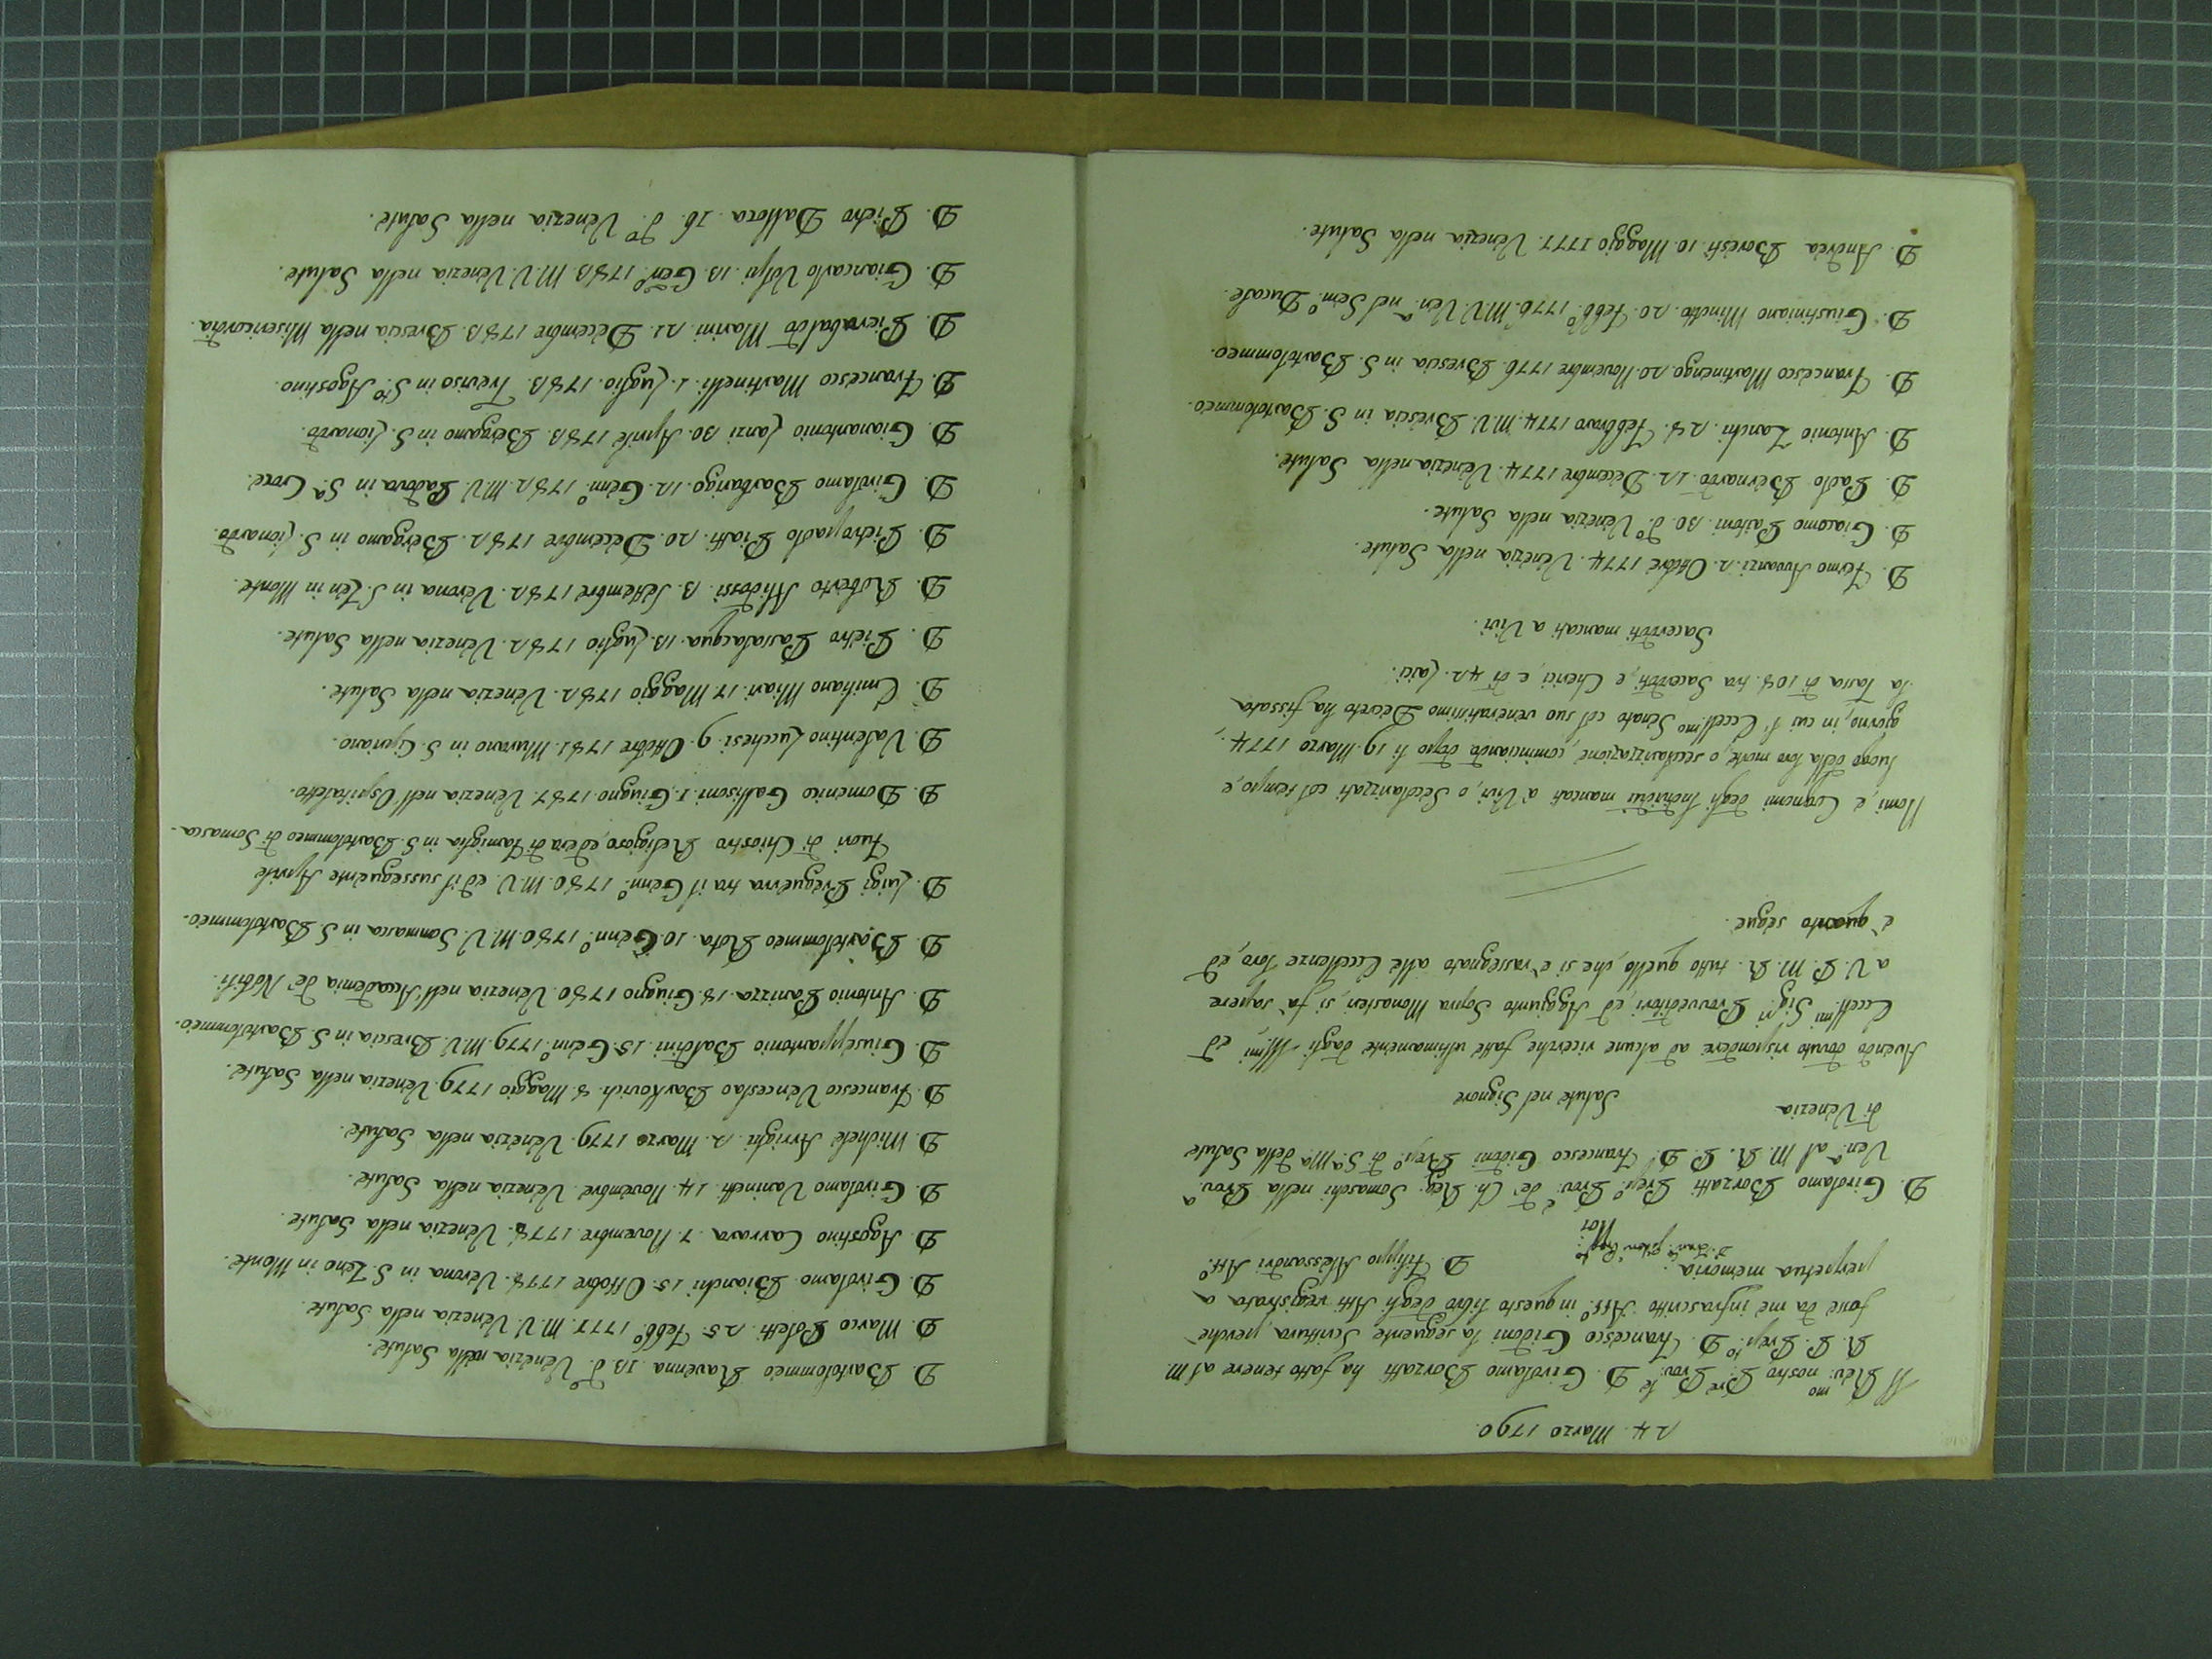 24. Marzo 1790.
Il Rev:mo nostro Prê Prov:le D. Girolamo Borzatti ha fatto tenere al M.
R. P. Prep:to D. Francesco Gidoni la seguente Scrittura, perchè
fosse da me infrascritto Att:o in questo libro degli Atti registrata a
perpetua memoria.
D. Filippo Alessandri Att:o
Noi
D. Girolamo Borzatti Prep:o Prov:e de' Ch. Reg: Somaschi nella Prov:a
Ven:a al M. R. P. D. Francesco Gidoni Prep:o di S.a M.a della Salute
di Venezia
Salute nel Signore
Avendo dovuto rispondere ad alcune ricerche fatte ultimamente dagli Ill:mi, ed
Eccell:mi Sig:ri Provveditori, ed Aggiunto Sopra Monasteri, si fa sapere
a V. P. M. R. tutto quello, che si è rassegnato alle Eccellenze loro, ed
è quanto segue.
Nomi, e Cognomi degli Individui mancati a' Vivi, o Secolarizzati col tempo, e
luogo della loro morte, o secolarizzazione, cominciando dopo li 19. Marzo 1774.,
giorno, in cui l'Eccell:mo Senato col suo veneratissimo Decreto ha fissata
la Tassa di 108. tra Sacerdoti, e Chierici, e di 42. Laici.
Sacerdoti mancati a Vivi.
D. Fermo Avanzi. 2. Ottobre 1774. Venezia nella Salute.
D. Giacomo Paitoni. 30. d.o Venezia nella Salute.
D. Paolo Bernardo. 12. Decembre 1774. Venezia nella Salute.
D. Antonio Zanchi. 28. Febbraro 1774. M.V. Brescia in S. Bartolommeo.
D. Francesco Martinengo. 20. Novembre 1776. Brescia in S. Bartolommeo.
D. Giustiniano Minotto. 20. Febb:o 1776. M.V. Ven:a nel Sem:o Ducale.
D. Andrea Boresti. 10. Maggio 1777. Venezia nella Salute.
D. Bartolommeo Ravenna. 13. d.o Venezia nella Salute.
D. Marco Poletti. 25. Febb:o 1777. M.V. Venezia nella Salute.
D. Girolamo Bianchi. 15. Ottobre 1778. Verona in S. Zeno in Monte.
D. Agostino Carrara. 7. Novembre 1778. Venezia nella Salute.
D. Girolamo Vaninetti. 14. Novembre. Venezia nella Salute.
D. Michele Arrighi. 2. Marzo 1779. Venezia nella Salute.
D. Francesco Venceslao Barkovich. 8. Maggio 1779. Venezia nella Salute.
D. Giuseppantonio Baldini. 15. Genn:o 1779. M.V. Brescia in S. Bartolommeo.
D. Antonio Panizza. 18. Giugno 1780. Venezia nell'Accademia de' Nobili.
D. Bartolommeo Rota. 10. Genn:o 1780. M.V. Sommasca in S. Bartolommeo.
D. Luigi Preguerra tra il Genn:o 1780. M.V. ed il susseguente Aprile
fuori di Chiostro Religioso, ed era di Famiglia in S. Bartolommeo di Somasca.
D. Domenico Gallisoni. 1. Giugno 1781. Venezia nell'Ospitaletto.
D. Valentino Lucchesi. 9. Ottobre 1781. Murano in S. Cipriano.
D. Emiliano Miari. 17. Maggio 1782. Venezia nella Salute.
D. Pietro Passalacqua. 13. Luglio 1782. Venezia nella Salute.
D. Roberto Midossi. 3. Settembre 1782. Verona in S. Zen in Monte.
D. Pietropaolo Piatti. 20. Decembre 1782. Bergamo in S. Lionardo.
D. Girolamo Barbarigo. 12. Genn:o 1782. M.V. Padova in S.a Croce.
D. Gianantonio Lanzi. 30. Aprile 1783. Bergamo in S. Lionardo.
D. Francesco Martinelli. 1. Luglio. 1783. Treviso in S.to Agostino.
D. Pierubaldo Marini. 21. Decembre 1783. Brescia nella Misericordia.
D. Giancarlo Volpi. 13. Gen:o 1783. M.V. Venezia nella Salute.
D. Pietro Dallora. 16. d.o Venezia nella Salute.